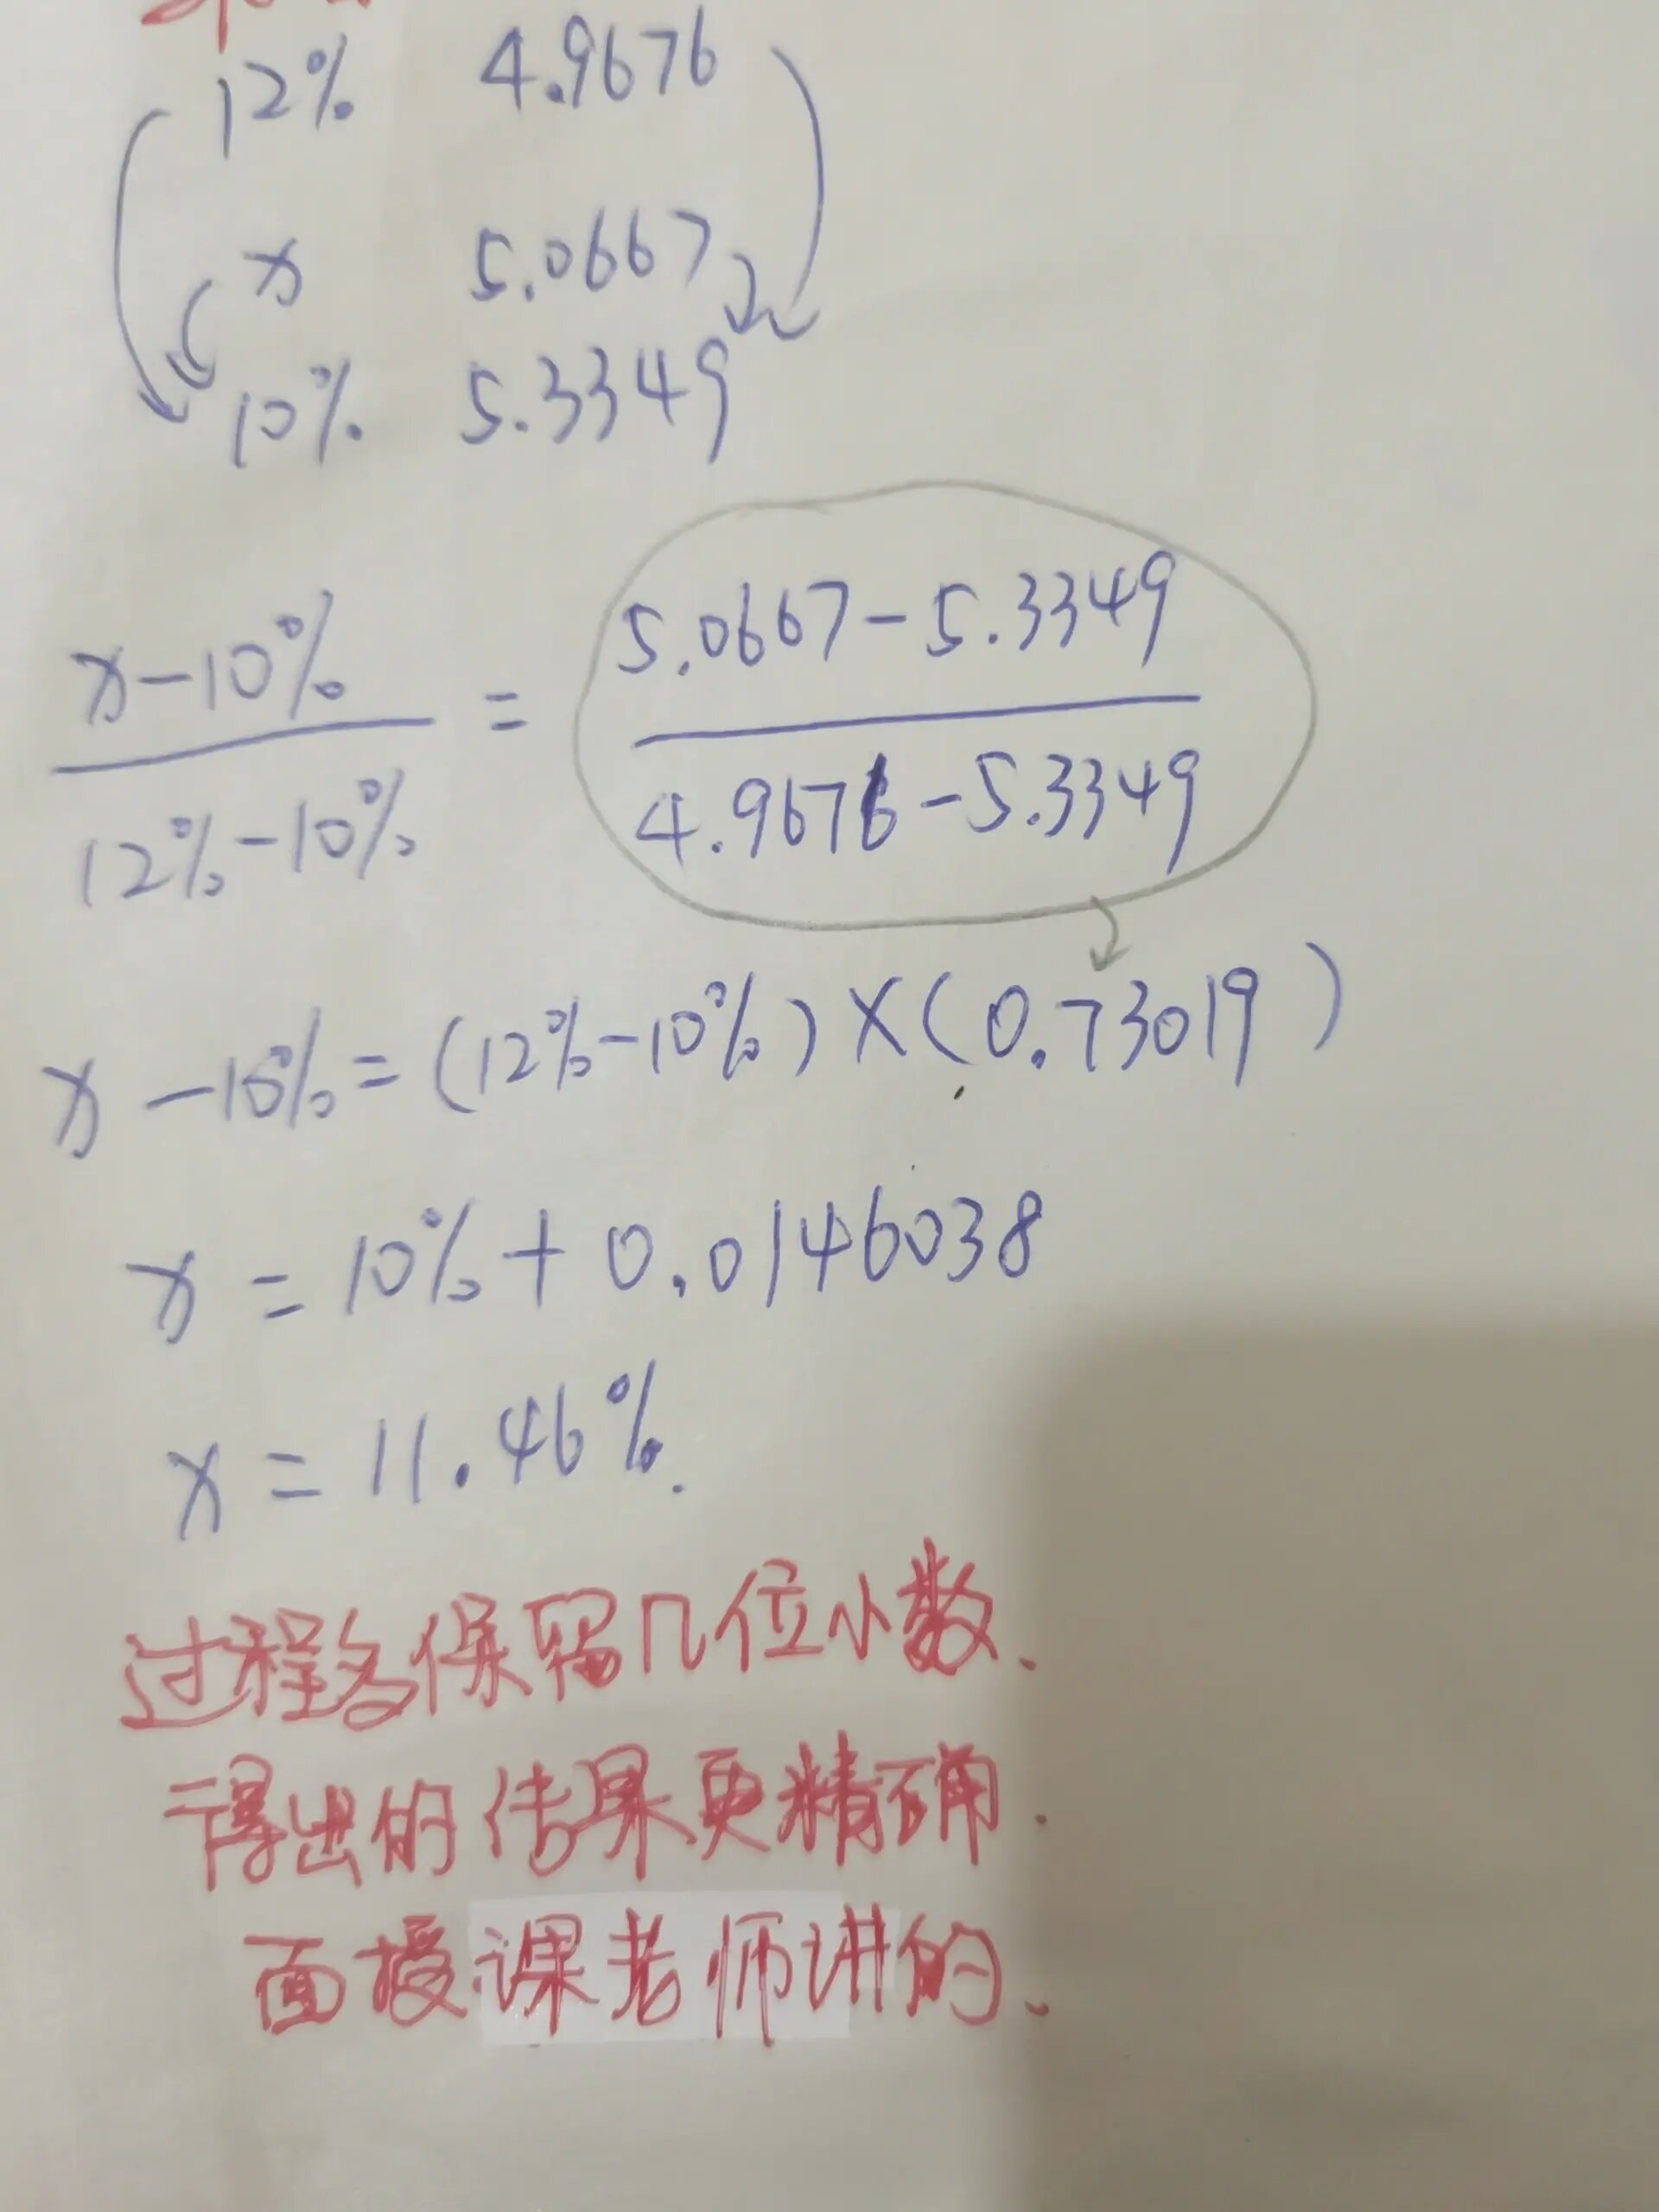 12% 4.9676
x 5.0667
10% 5.3349
x-10% = 5.0667-5.3349
12%-10% 4.9676-5.3349
x-10%=(12%-10%)×(0.73019)
x = 10%+0.0146038
x = 11.46%.
过程多保留几位小数、
得出的结果更精确.
面授课老师讲的、